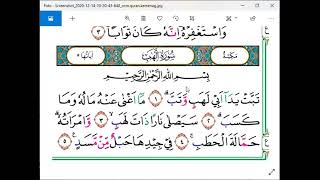 Foto - Screenshot_2020-12-14-10-20-43-840_com.quran.kemenag.jpg
وَاسْتَغْفِرْهُ ۗ اِنَّهٗ كَانَ تَوَّابًا ࣖ ٣
مَكِّيَّةٌ سُوْرَةُ اللَّهَبِ اٰيَاتُهَا ٥
بِسْمِ اللّٰهِ الرَّحْمٰنِ الرَّحِيْمِ
تَبَّتْ يَدَآ اَبِيْ لَهَبٍ وَّتَبَّۗ ١ مَآ اَغْنٰى عَنْهُ مَالُهٗ وَمَا
كَسَبَۗ ٢ سَيَصْلٰى نَارًا ذَاتَ لَهَبٍۙ ٣ وَّامْرَاَتُهٗ ۗ
حَمَّالَةَ الْحَطَبِۚ ٤ فِيْ جِيْدِهَا حَبْلٌ مِّنْ مَّسَدٍ ࣖ ٥